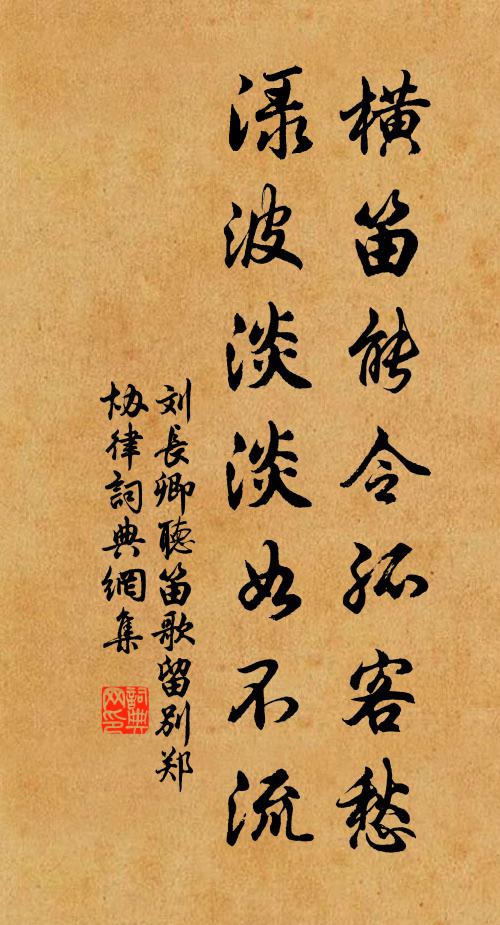 横笛能令孤客愁
渌波淡淡如不流
刘長卿聴笛歌留别郑
协律詞典網集
詞典网印